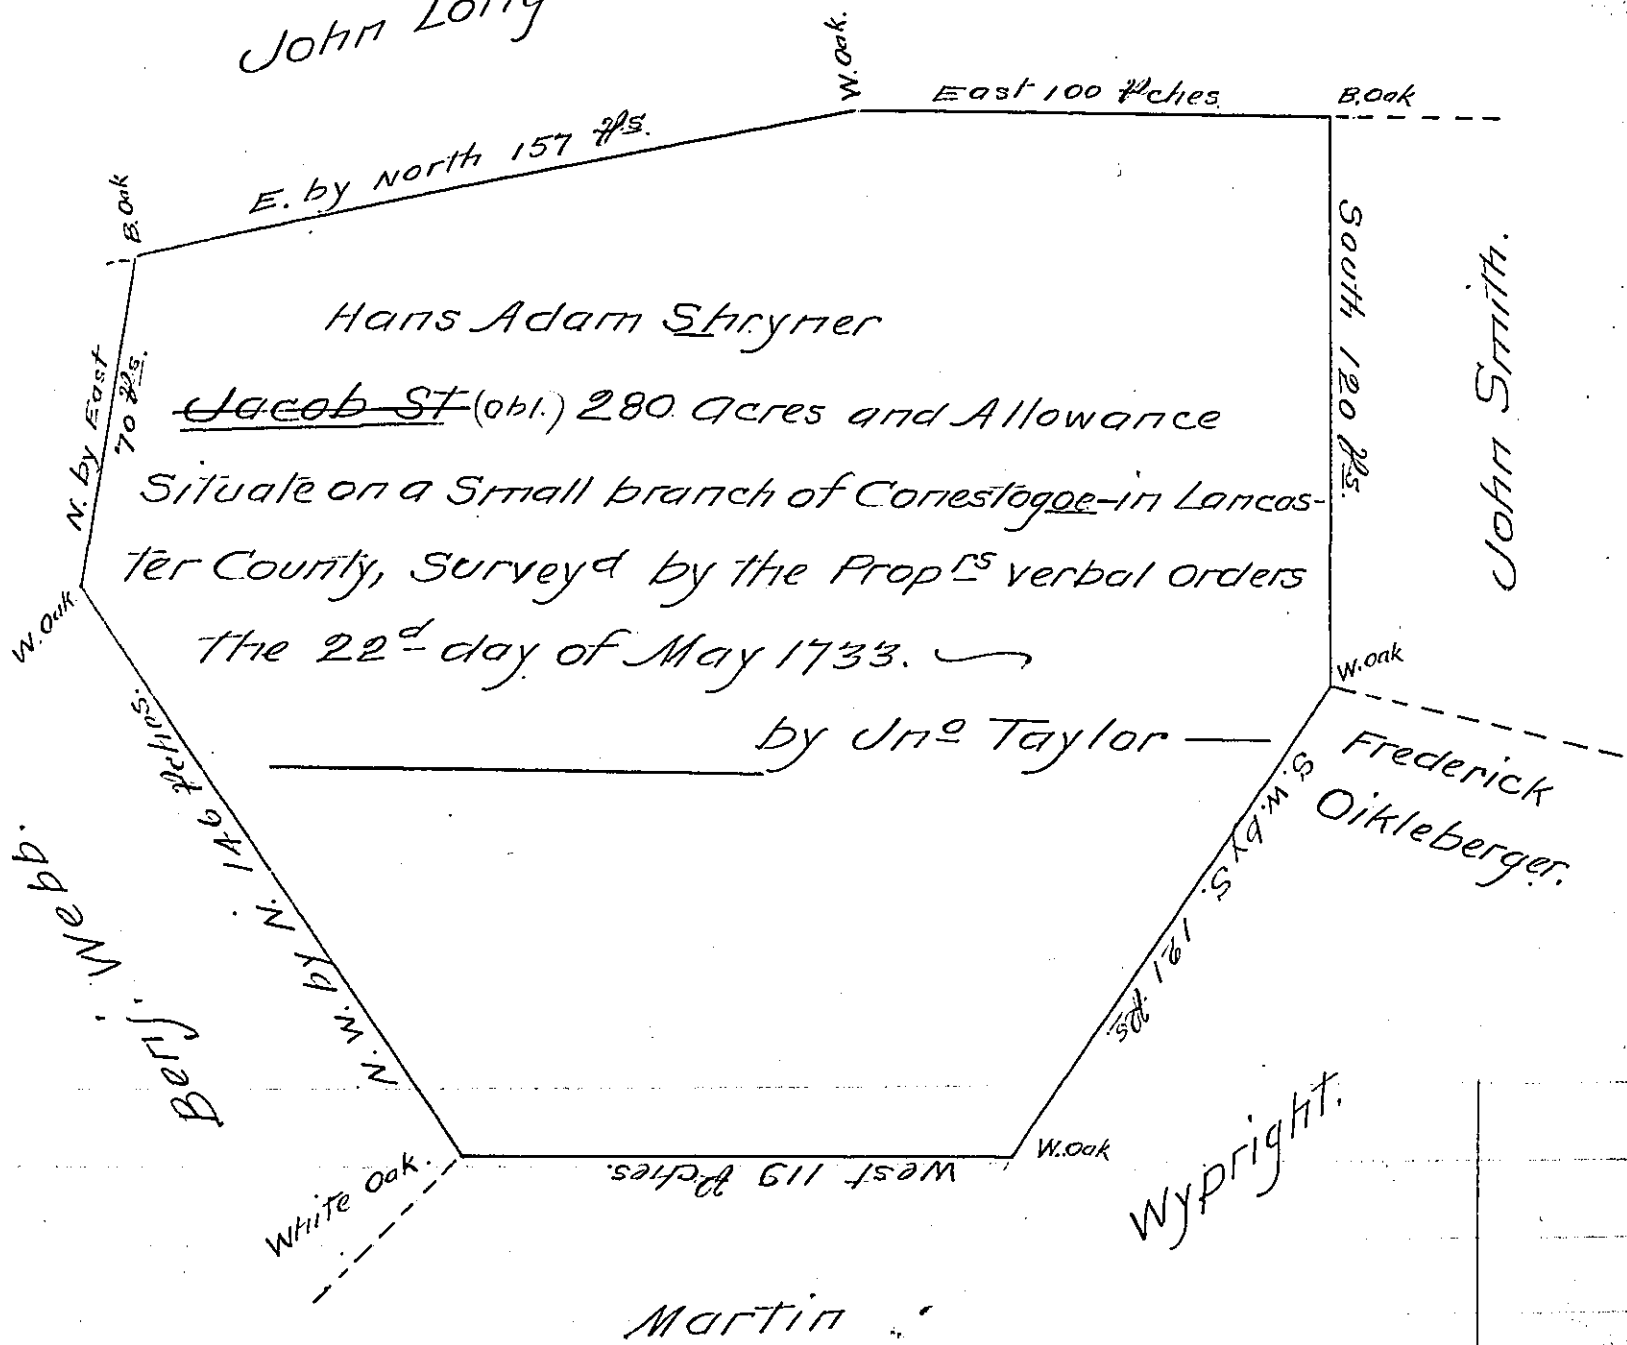 John Long
W. Oak.
East 100 Pches
B. Oak
E. by North 157 Ps.
B. Oak
South 120 Ps.
John Smith.
N. by East
70 Ps.
Hans Adam Shryner
Jacob St (obl.) 280 Acres and Allowance
Situate on a Small branch of Conestogoe in Lancas-
ter County, Survey'd by the Prop.rs verbal Orders
the 22d day of May 1733.
by Jno Taylor
W. Oak
W. Oak
Frederick
Oikleberger.
S. W. by S. 121 Ps.
N. W. by N. 146 Pchs.
Benj. Webb.
White Oak.
West 119 Pches.
W. Oak
Martin Wypright.